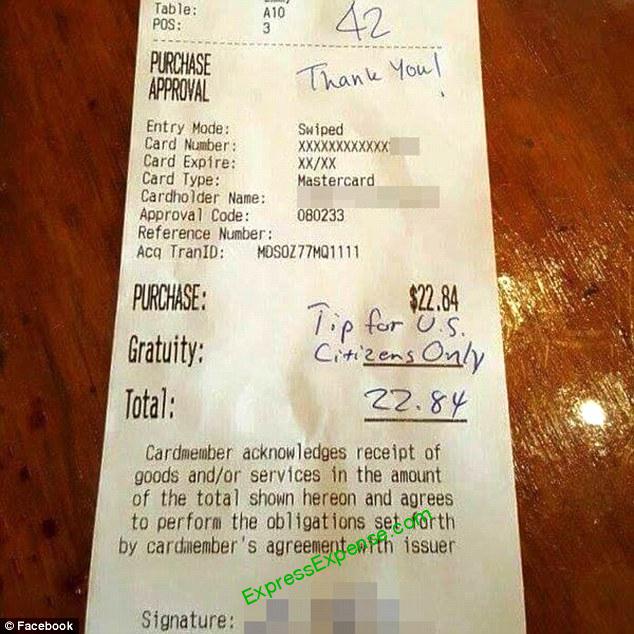 Table: A10
POS: 3
42
PURCHASE
APPROVAL
Thank You!
Entry Mode: Swiped
Card Number: XXXXXXXXXXXX
Card Expire: XX/XX
Card Type: Mastercard
Cardholder Name:
Approval Code: 080233
Reference Number:
Acq TranID: MDSOZ77MQ1111
PURCHASE: $22.84
Tip for U.S.
Gratuity: Citizens Only
Total: 22.84
Cardmember acknowledges receipt of
goods and/or services in the amount
of the total shown hereon and agrees
to perform the obligations set forth
by cardmember's agreement with issuer
ExpressExpense.com
Signature:
© Facebook